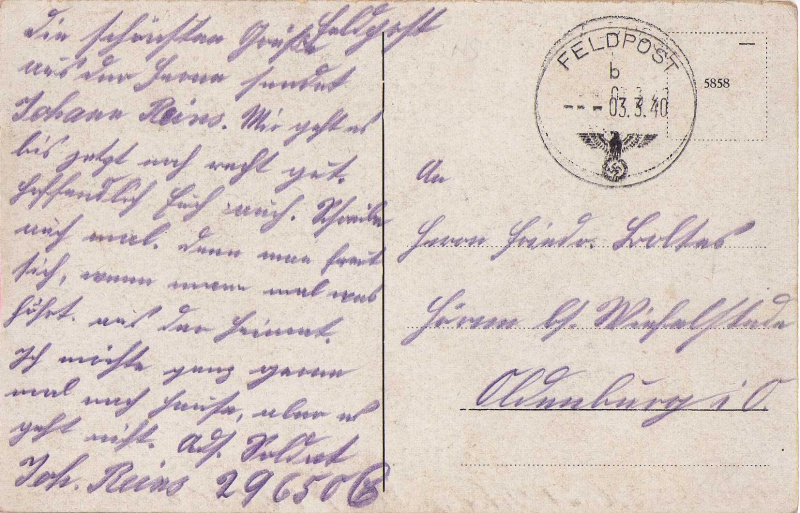 Feldpost
Die schönsten Grüße
aus der Ferne sendet
Johann Reins. Mir geht es
bis jetzt noch recht gut.
Hoffentlich Euch auch. Schreibe
auch mal. denn man freut
sich, wenn mann mal was
hört. aus der Heimat.
Ich möchte ganz gerne
mal nach Hause, aber es
geht nicht. Abs. Soldat
Joh. Reins 29650 B
FELDPOST
b
03.3.40
5858
An
Herrn Friedr. Boltes
bs. Wiefelstede
Oldenburg i O.